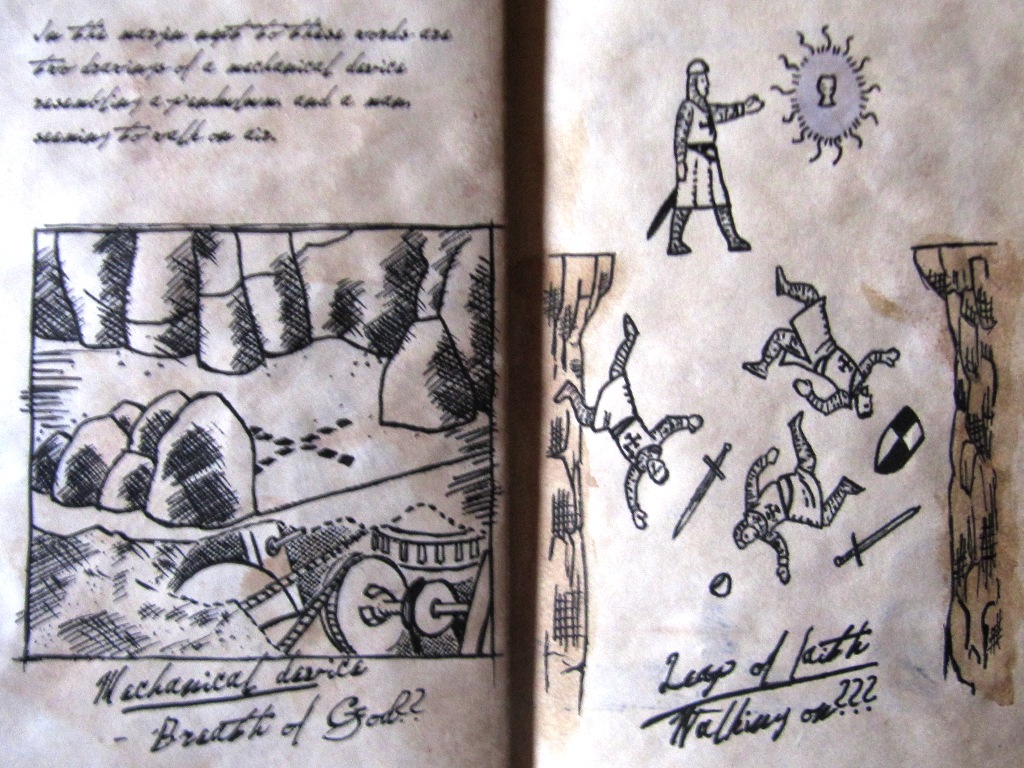 In the margin next to these words are
two drawings of a mechanical device
resembling a pendulum and a man
seeming to walk on air.
Mechanical device
- Breath of God?
Leap of faith
Walking on???